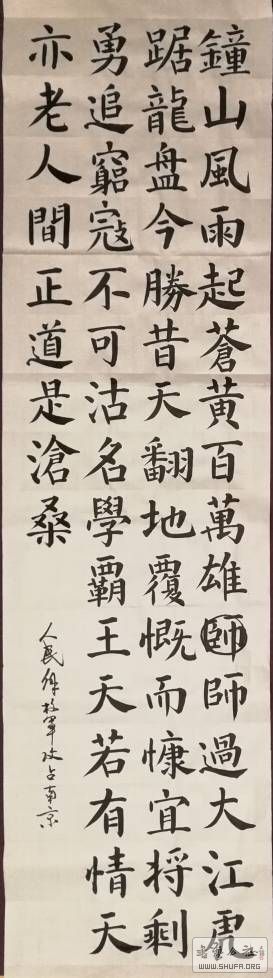 鐘山風雨起蒼黃百萬雄師師過大江虎
踞龍盤今勝昔天翻地覆慨而慷宜將剩
勇追窮寇不可沽名學霸王天若有情天
亦老人間正道是滄桑
人民解放軍攻占南京
WWW.SHUFA.ORG